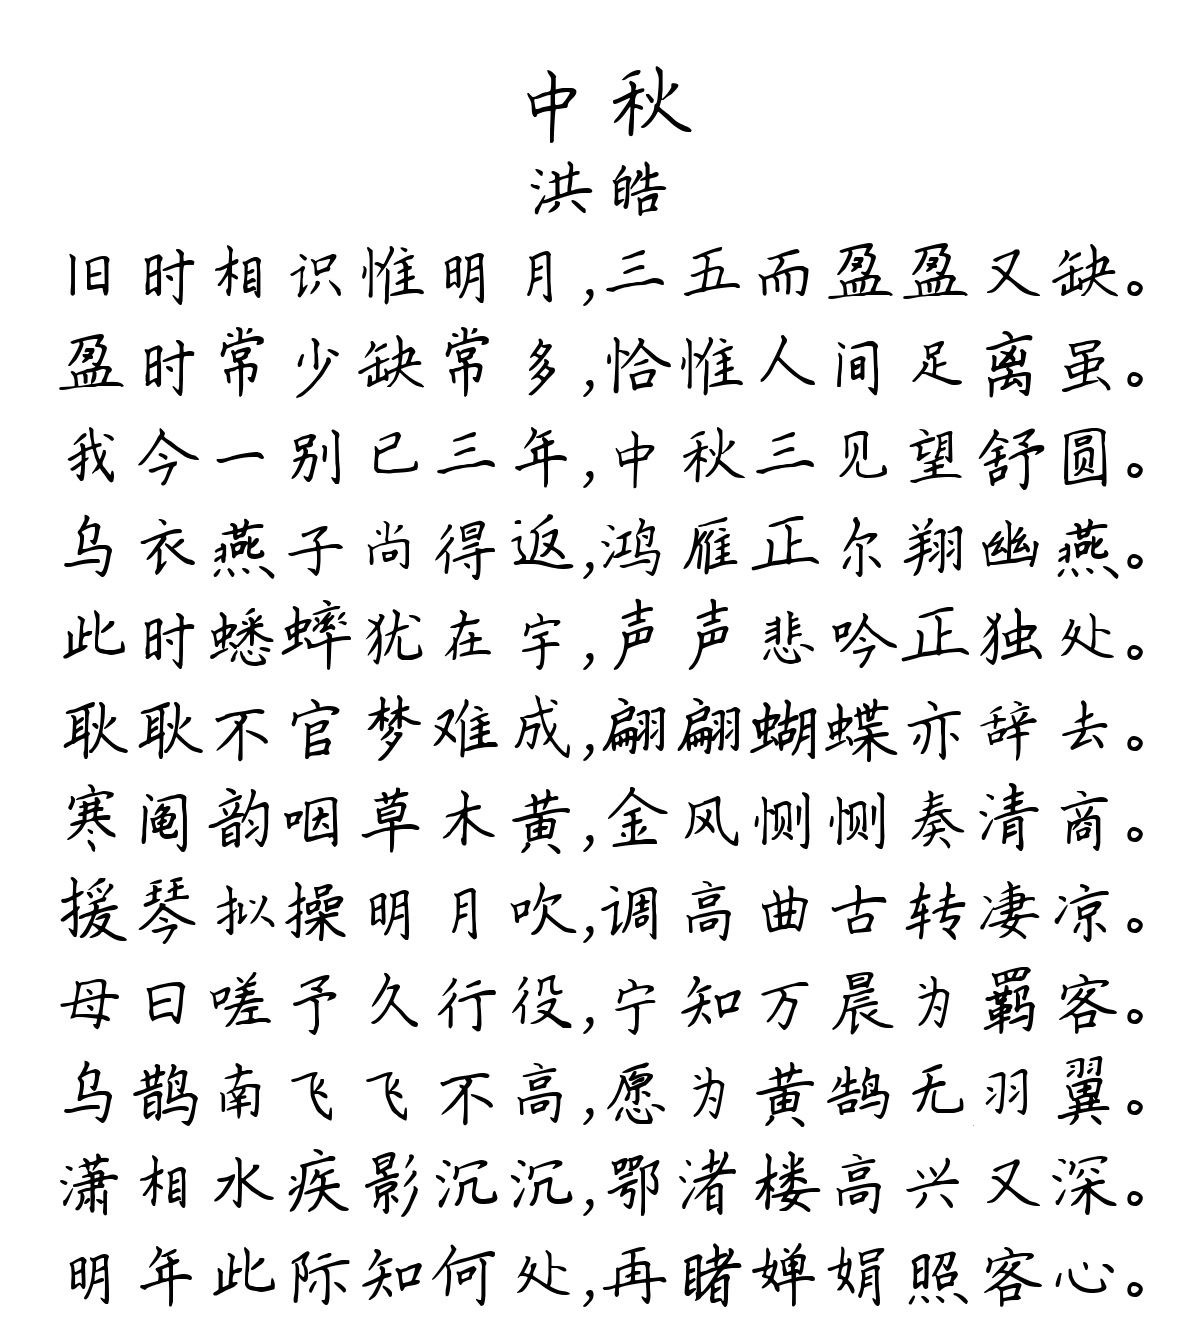 中秋
洪皓
旧时相识惟明月,三五而盈盈又缺。
盈时常少缺常多,恰惟人间足离虽。
我今一别已三年,中秋三见望舒圆。
乌衣燕子尚得返,鸿雁正尔翔幽燕。
此时蟋蟀犹在宇,声声悲吟正独处。
耿耿不官梦难成,翩翩蝴蝶亦辞去。
寒阄韵咽草木黄,金风恻恻奏清商。
援琴拟操明月吹,调高曲古转凄凉。
母曰嗟予久行役,宁知万晨为羁客。
乌鹊南飞飞不高,愿为黄鹄无羽翼。
潇相水疾影沉沉,鄂渚楼高兴又深。
明年此际知何处,再睹婵娟照客心。